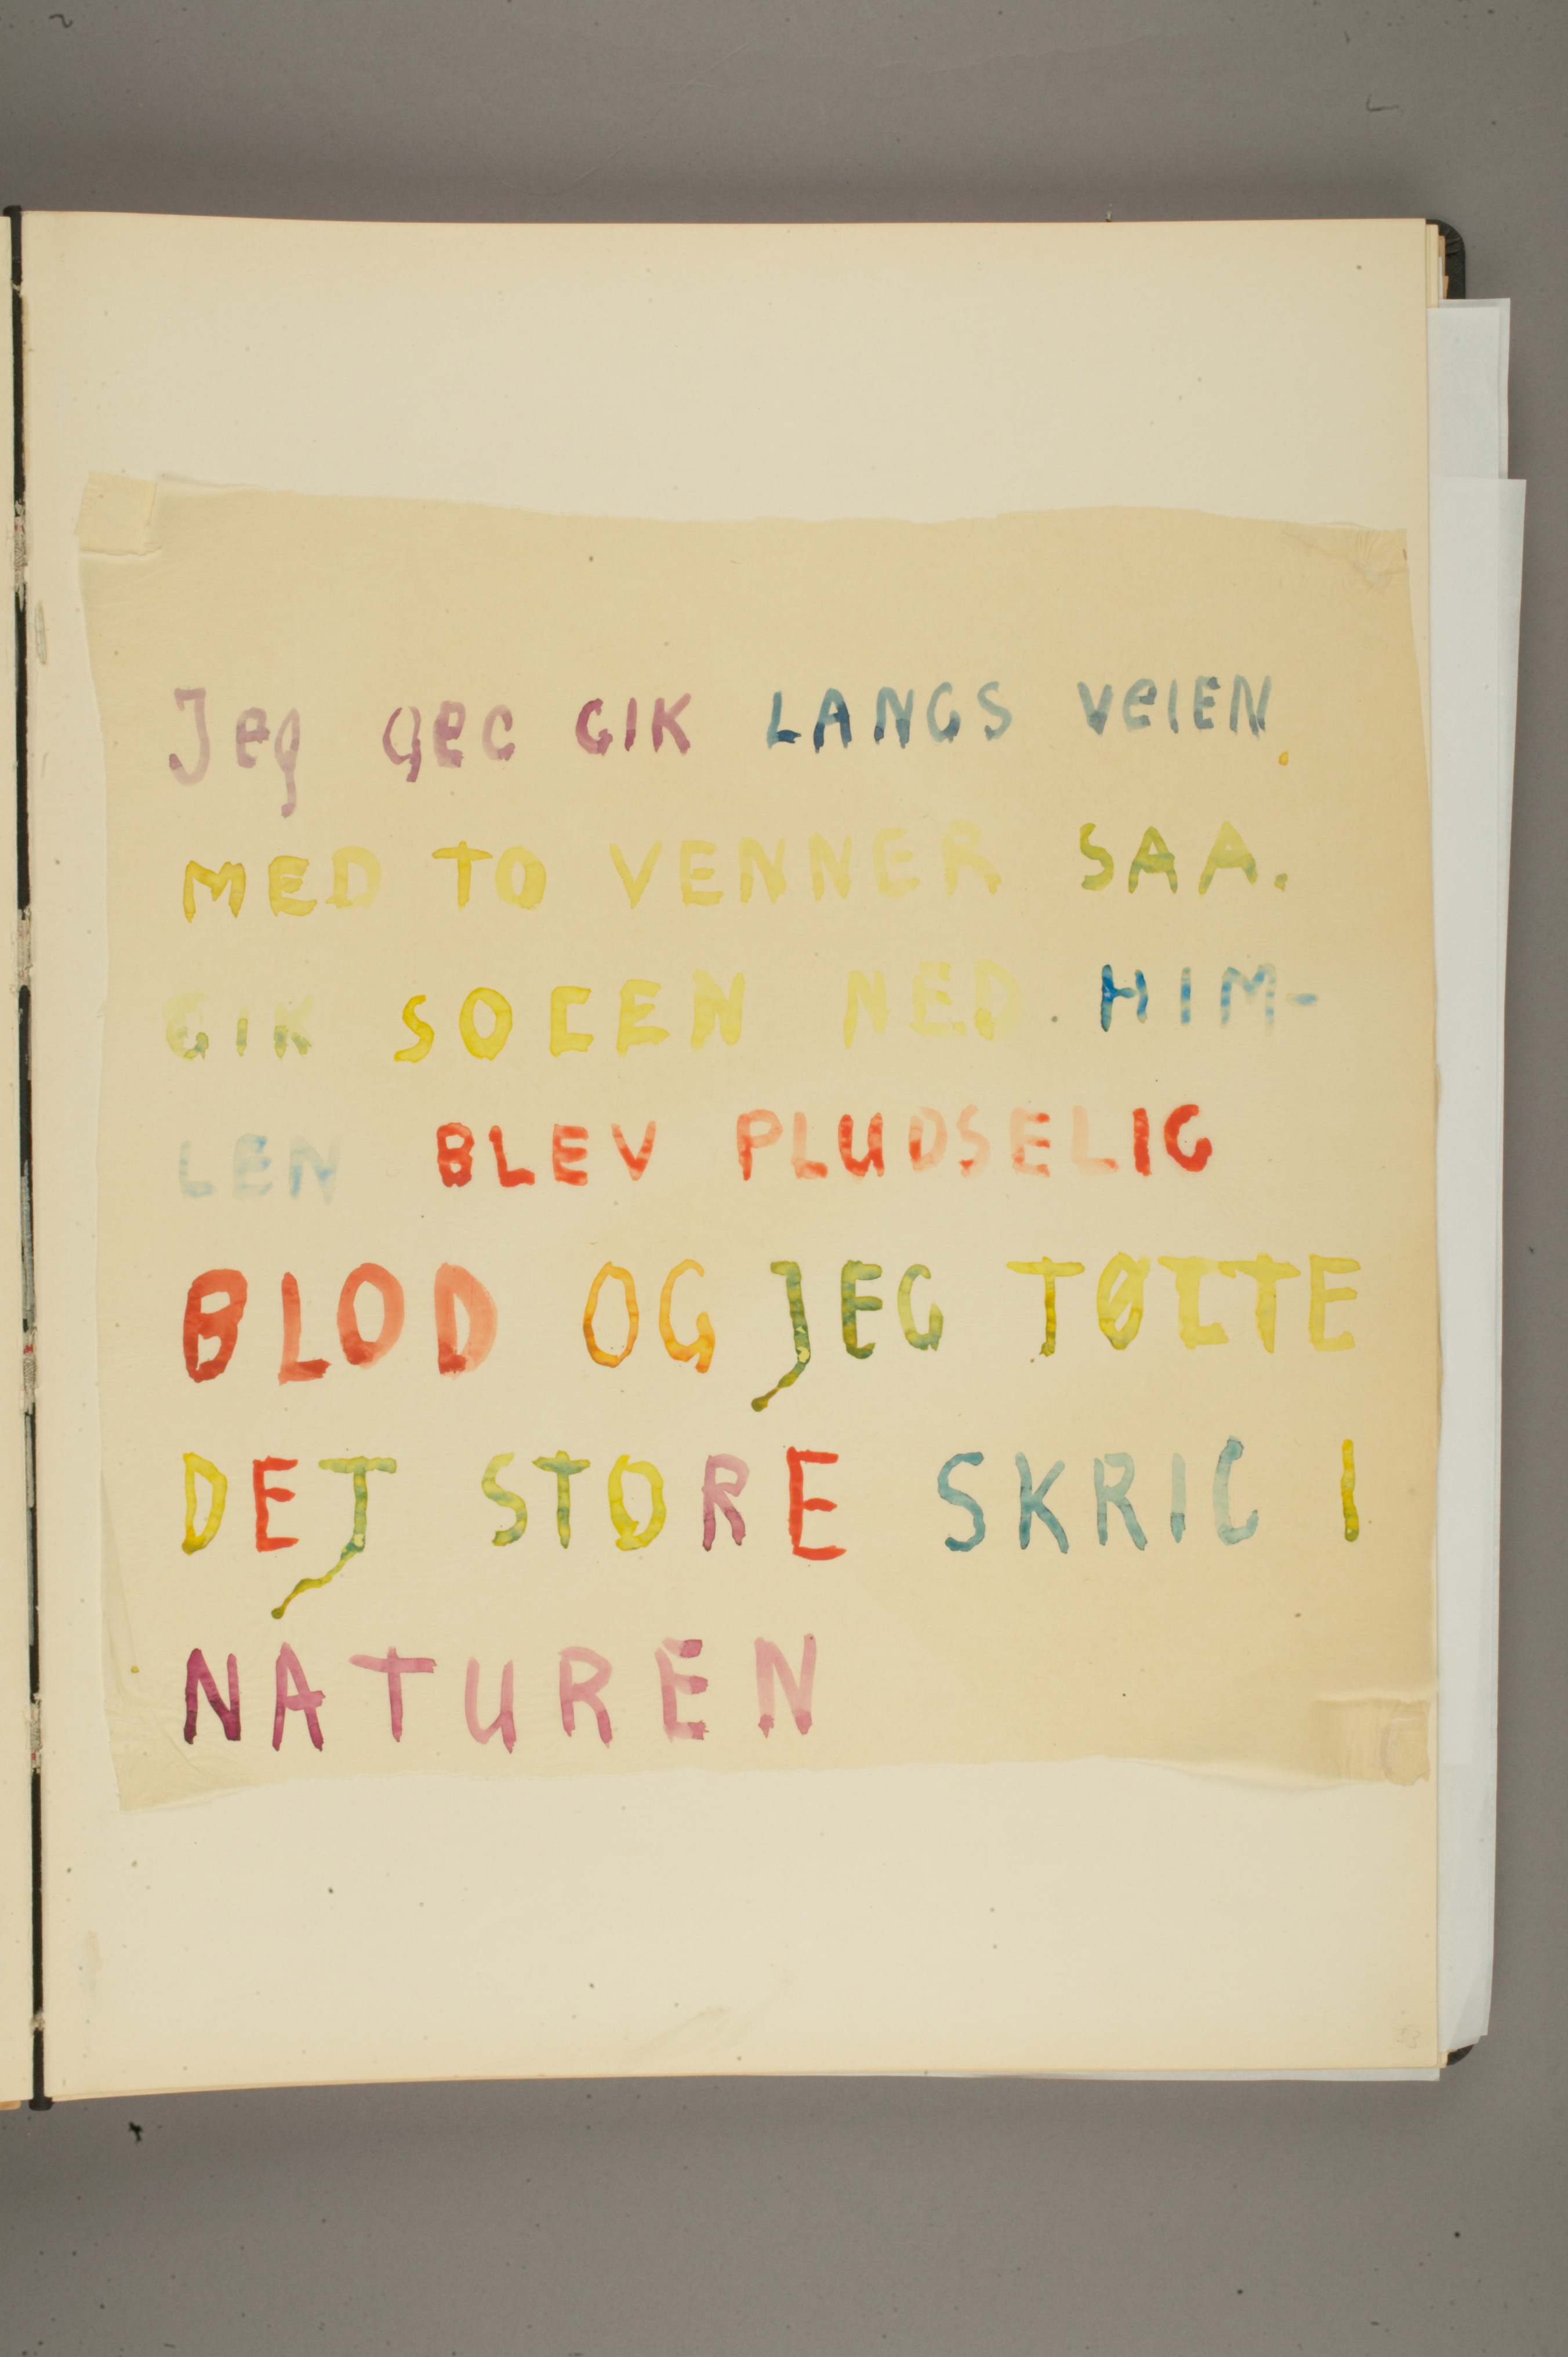 Jeg gec GIK LANGS VEIEN
MED TO VENNER SAA.
GIK SOLEN NED. HIM-
LEN BLEV PLUDSELIG
BLOD OG JEG FØLTE
DET STORE SKRIG I
NATUREN
53